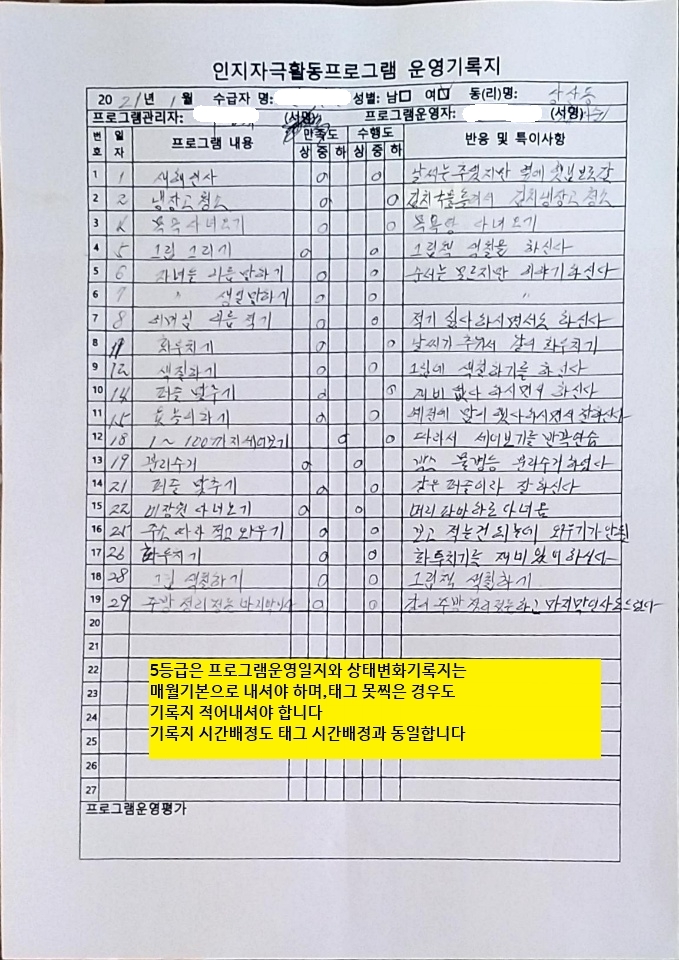 인지자극활동프로그램 운영기록지
2021년 1월 수급자 명: 성별: 남□ 여☑ 동(리)명:
프로그램관리자: (서명) 프로그램운영자: (서명)
번호 일자 프로그램 내용 만족도 수행도 반응 및 특이사항
상 중 하 상 중 하
1 1 새해인사 ○ ○ 날씨는 주웠지만
2 2 냉장고 청소 ○ ○ 김치냉장고 청소
3 4 목욕 다녀오기 ○ ○ 목욕탕 다녀오기
4 5 그림 그리기 ○ ○ 그림책 색칠을 하신다
5 6 자녀들 이름 말하기 ○ ○ 순서는 모르지만 이야기 하신다
6 7 " 생일 말하기 ○ ○ "
7 8 이름 적기 ○ ○ 적기 싫다 하시면서도 하신다
8 11 화투치기 ○ ○ 날씨가 추워서 같이 화투치기
9 12 색칠하기 ○ ○ 그림에 색칠하기를 하신다
10 14 퍼즐 맞추기 ○ ○ 재미 없다 하시면서 하신다
11 15 윷놀이하기 ○ ○ 예전에 많이 했다 하시면서 잘하신다
12 18 1~100까지 세어보기 ○ ○ 따라서 세어보기를 반복연습
13 19 분리수거 ○ ○ 박스 물병등 분리수거 하였다
14 21 퍼즐 맞추기 ○ ○ 같은 퍼즐이라 잘 하신다
15 22 미장원 다녀오기 ○ ○ 머리 파마하로 다녀옴
16 25 주소 따라 적고 외우기 ○ ○ 보고 적는건 되는데 외우기가 안됨
17 26 화투치기 ○ ○ 화투치기를 재미있어 하신다
18 28 그림 색칠하기 ○ ○ 그림책 색칠하기
19 29 주방 정리정돈 마지막인사 ○ ○ 같이 주방 정리정돈하고 마지막인사도 드렸다
20
21
22
23
24
25
26
27
5등급은 프로그램운영일지와 상태변화기록지는
매월기본으로 내셔야 하며,태그 못찍은 경우도
기록지 적어내셔야 합니다
기록지 시간배정도 태그 시간배정과 동일합니다
프로그램운영평가